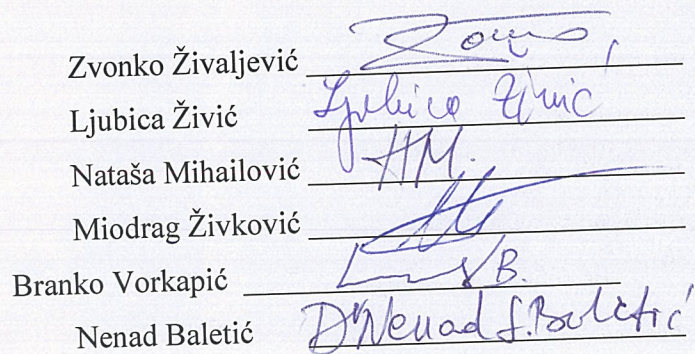 Zvonko Živaljević
Ljubica Živić Ljubica Živić
Nataša Mihailović HM.
Miodrag Živković
Branko Vorkapić B.
Nenad Baletić Dr Nenad J. Baletić